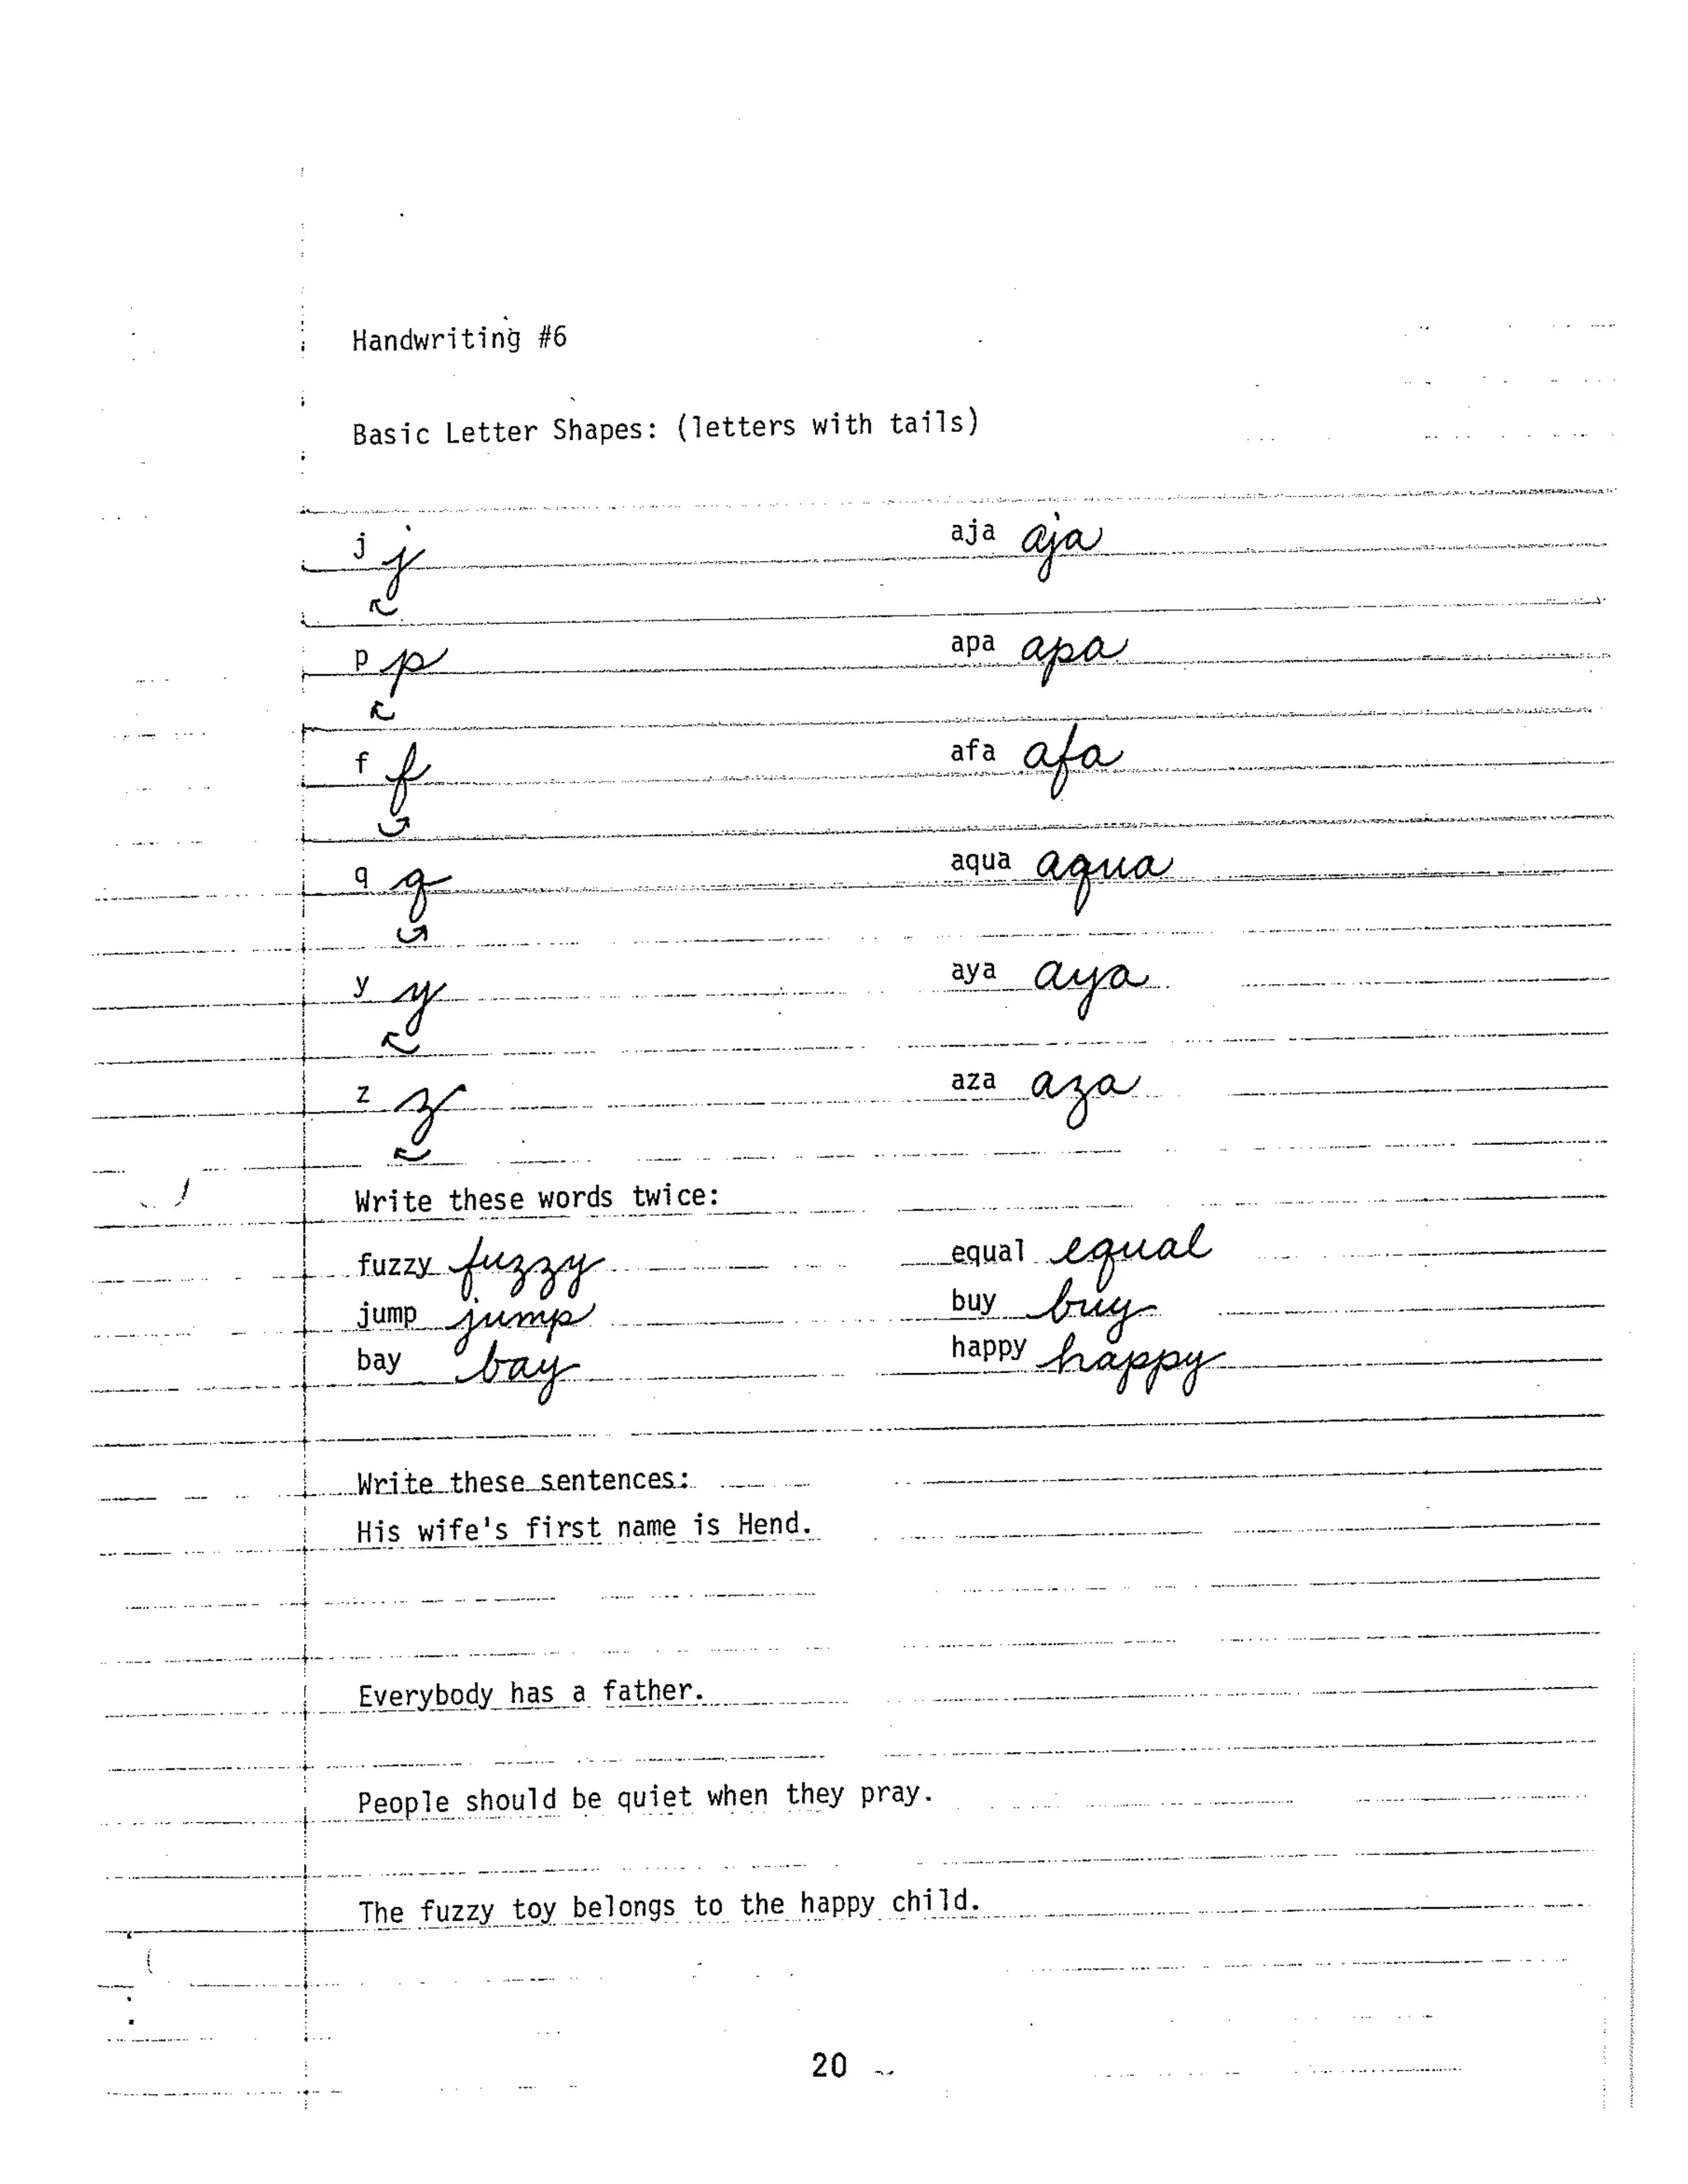 Handwriting #6
Basic Letter Shapes: (letters with tails)
j j aja aja
p p apa apa
f f afa afa
q q aqua aqua
y y aya aya
z z aza aza
Write these words twice:
fuzzy fuzzy equal equal
jump jump buy buy
bay bay happy happy
Write these sentences:
His wife's first name is Hend.
Everybody has a father.
People should be quiet when they pray.
The fuzzy toy belongs to the happy child.
20